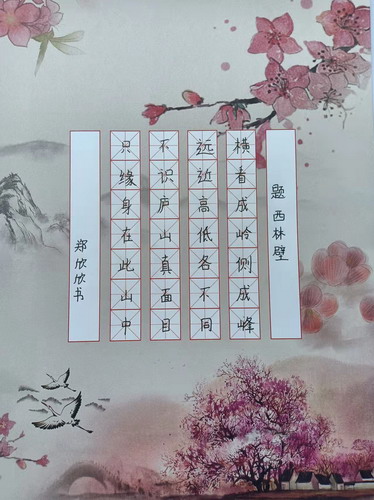 题西林壁
横看成岭侧成峰
远近高低各不同
不识庐山真面目
只缘身在此山中
郑欣欣书